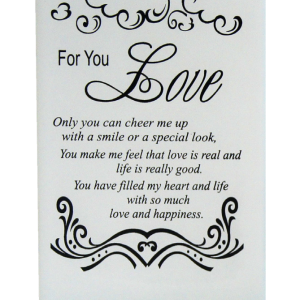 For You
Love
Only you can cheer me up
with a smile or a special look,
You make me feel that love is real and
life is really good.
You have filled my heart and life
with so much
love and happiness.